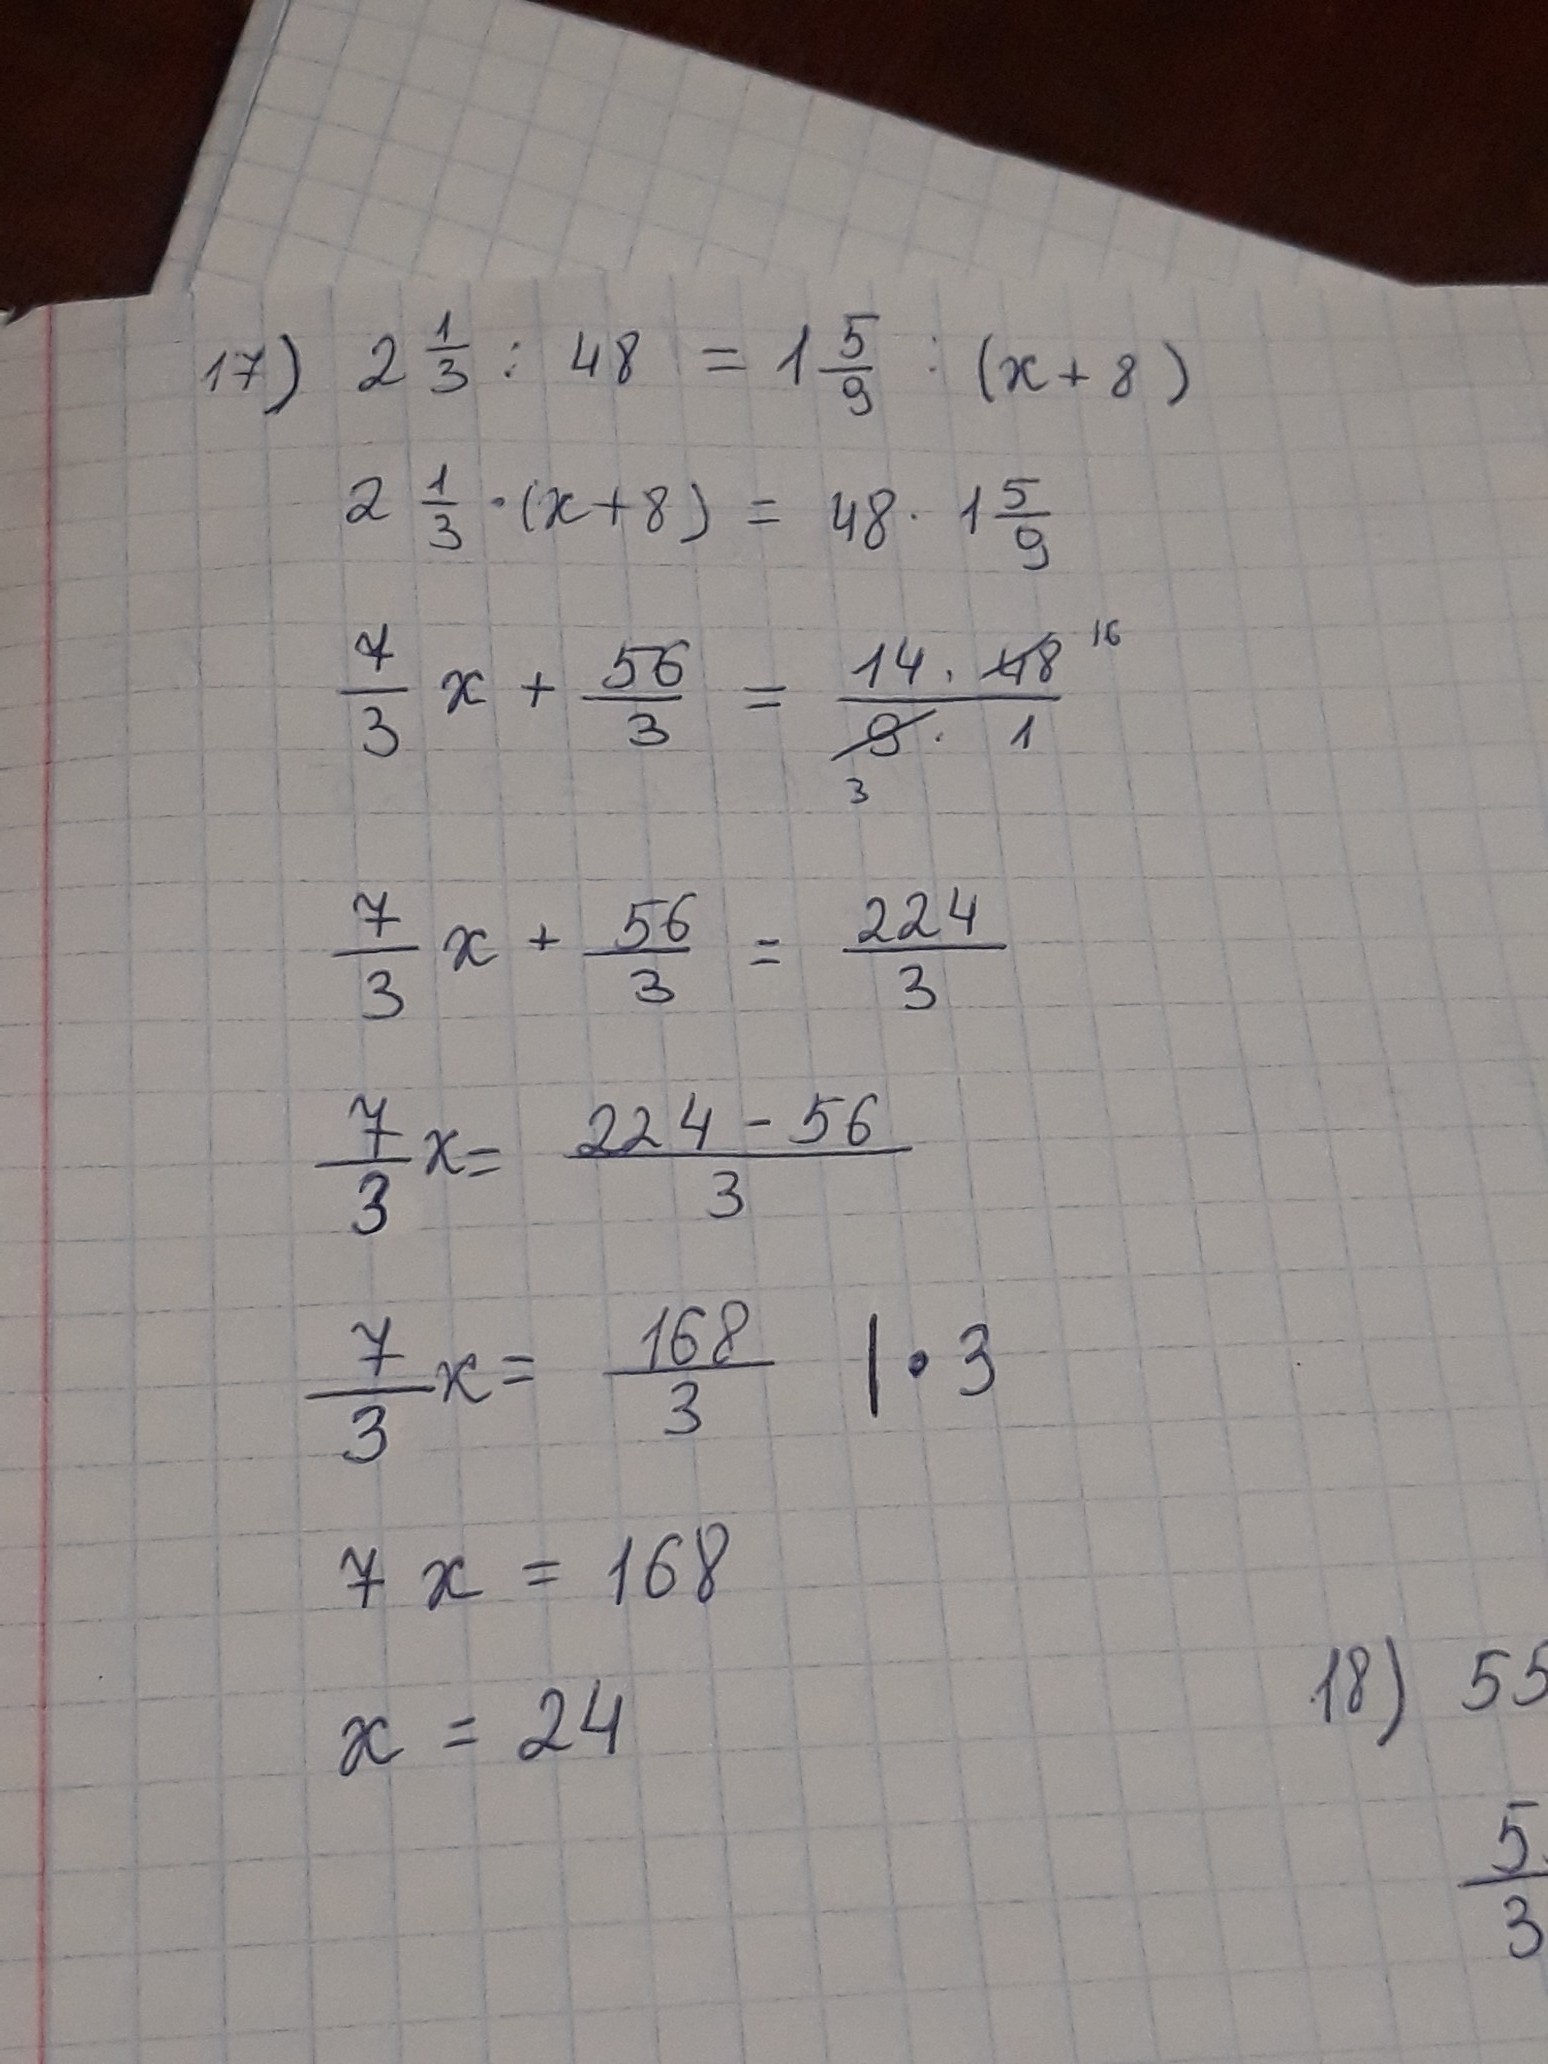 17) 2 1/3 : 48 = 1 5/9 : (x + 8)
2 1/3 · (x + 8) = 48 · 1 5/9
7/3 x + 56/3 = 14 · 48 16 / 9 · 1 3
7/3 x + 56/3 = 224/3
7/3 x = 224 - 56 / 3
7/3 x = 168/3 | · 3
7 x = 168
x = 24
18) 55
5/3